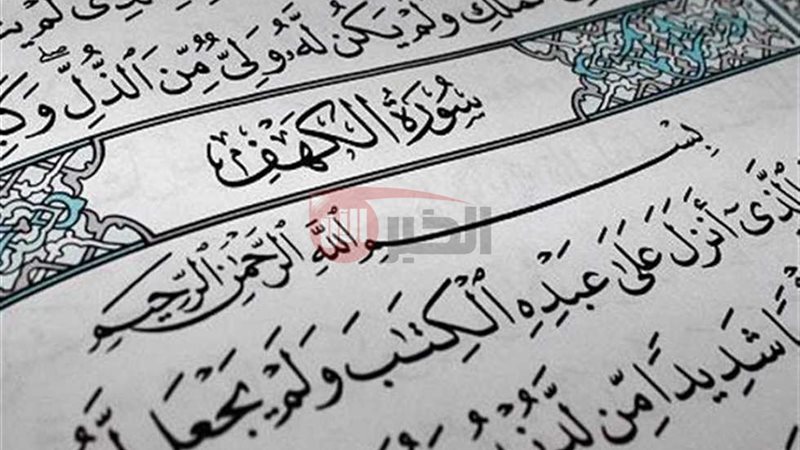 ٱلْمُلْكِ وَلَمْ يَكُن لَّهُۥ وَلِىٌّ مِّنَ ٱلذُّلِّ ۖ وَ
سُورَةُ الكَهْفِ
بِسْمِ اللَّهِ الرَّحْمَٰنِ الرَّحِيمِ
ٱلَّذِىٓ أَنزَلَ عَلَىٰ عَبْدِهِ ٱلْكِتَٰبَ وَلَمْ يَجْعَل
شَدِيدًا مِّن لَّدُنْهُ
الخبر